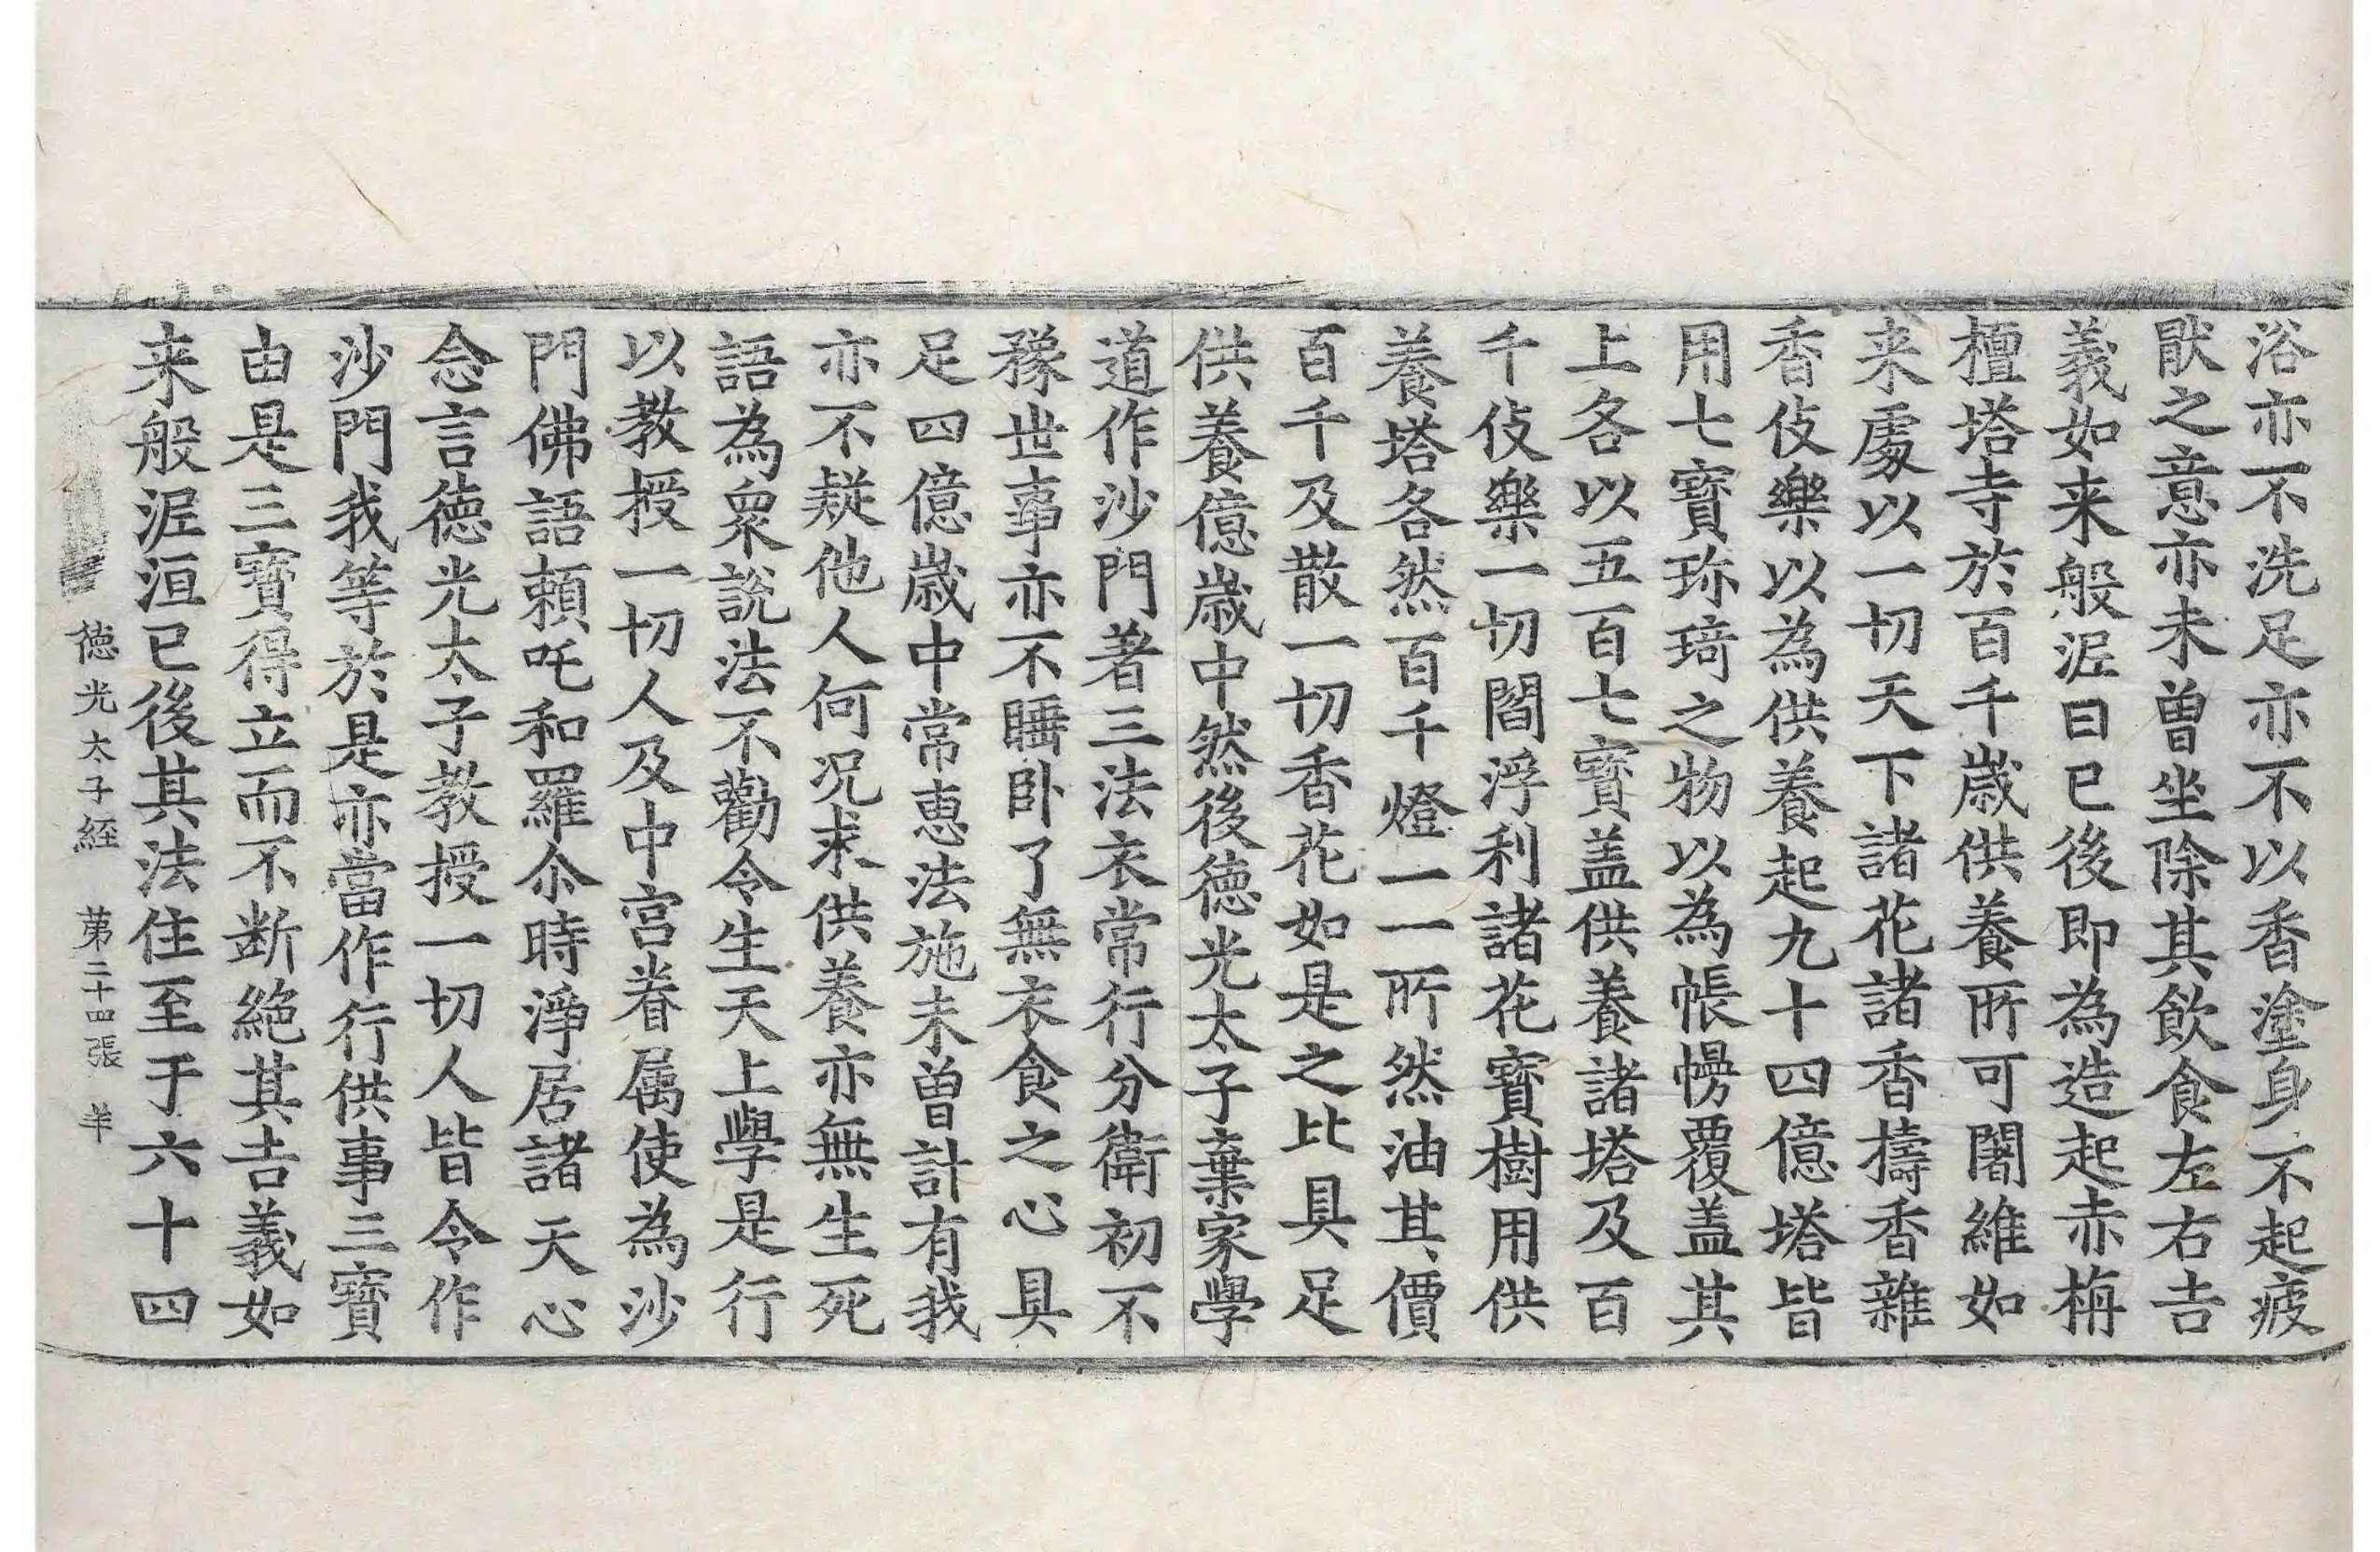 浴亦不洗足亦不以香塗身不起疲
猒之意亦未曽坐除其飲食左右吉
義如来般泥曰已後即為造起赤栴
檀塔寺於百千歳供養所可闍維如
来處以一切天下諸花諸香擣香雜
香伎樂以為供養起九十四億塔皆
用七寳珎琦之物以為帳幔覆盖其
上各以五百七寳盖供養諸塔及百
千伎樂一切閻浮利諸花寳樹用供
養塔各然百千燈一一所然油其價
百千及散一切香花如是之比具足
供養億歳中然後徳光太子棄家學
道作沙門著三法衣常行分衛初不
豫世事亦不睡卧了無衣食之心具
足四億歳中常恵法施未曽計有我
亦不疑他人何况求供養亦無生死
語為衆說法不勸令生天上學是行
以教授一切人及中宫眷属使為沙
門佛語頼吒和羅尒時淨居諸天心
念言徳光太子教授一切人皆令作
沙門我等於是亦當作行供事三寳
由是三寳得立而不断絶其吉義如
来般泥洹已後其法住至于六十四
徳光太子經 苐二十四張 羊